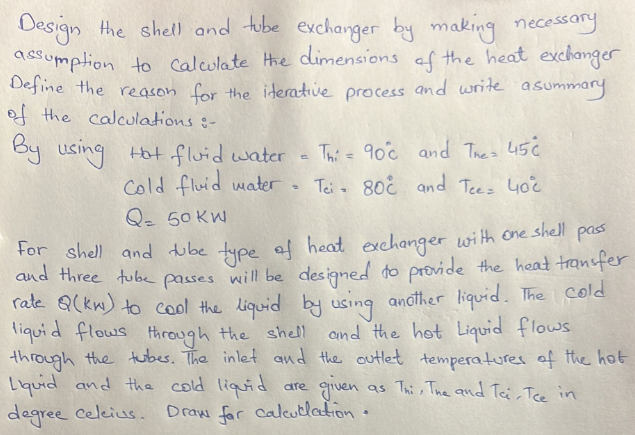 Design the shell and tube exchanger by making necessary
assumption to calculate the dimensions of the heat exchanger
Define the reason for the iterative process and write a summary
of the calculations :-
By using Hot fluid water = Thi = 90°c and The = 45°c
Cold fluid water = Tci = 80°c and Tce = 40°c
Q = 50 KW
For shell and tube type of heat exchanger with one shell pass
and three tube passes will be designed to provide the heat transfer
rate Q(KW) to cool the liquid by using another liquid. The cold
liquid flows through the shell and the hot Liquid flows
through the tubes. The inlet and the outlet temperatures of the hot
Liquid and the cold liquid are given as Thi, The and Tci, Tce in
degree celcius. Draw for calcutlation.